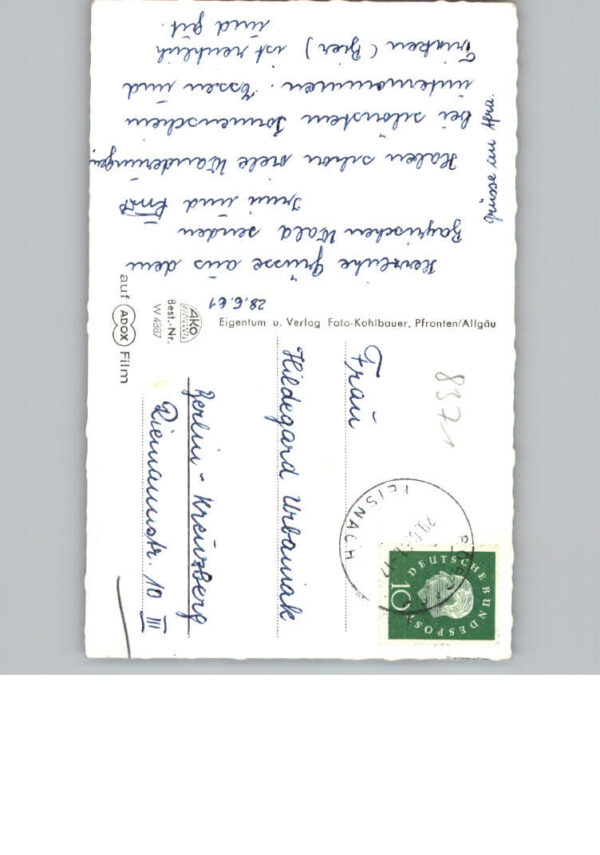 28.6.61
Herzliche Grüsse aus dem
Bayrischen Wald senden
Irmi und
Haben schon viele Wanderungen
bei schönstem Sonnenschein
unternommen. Essen und
Trinken (Bier) ist reichlich
und gut.
Grüsse an
Eigentum u. Verlag Foto-Kohlbauer, Pfronten/Allgäu
AKO
Best.-Nr.
W 4887
auf ADOX Film
Frau
Hildegard Urbaniak
Berlin-Kreuzberg
Riemannstr. 10 III
8371
DEUTSCHE BUNDESPOST
10
TEISNACH